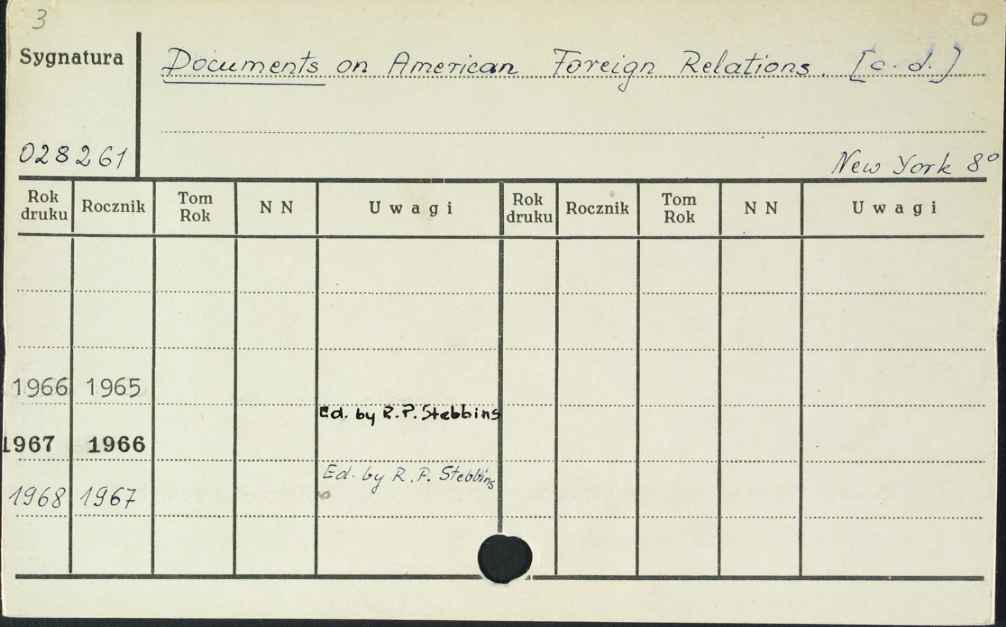 3 0
Sygnatura Documents on American Foreign Relations. [c. d.]
028261 New York 8°
Rok druku Rocznik Tom Rok N N Uwagi Rok druku Rocznik Tom Rok N N Uwagi
1966 1965
Ed. by R.P. Stebbins
1967 1966
Ed. by R.P. Stebbins
1968 1967